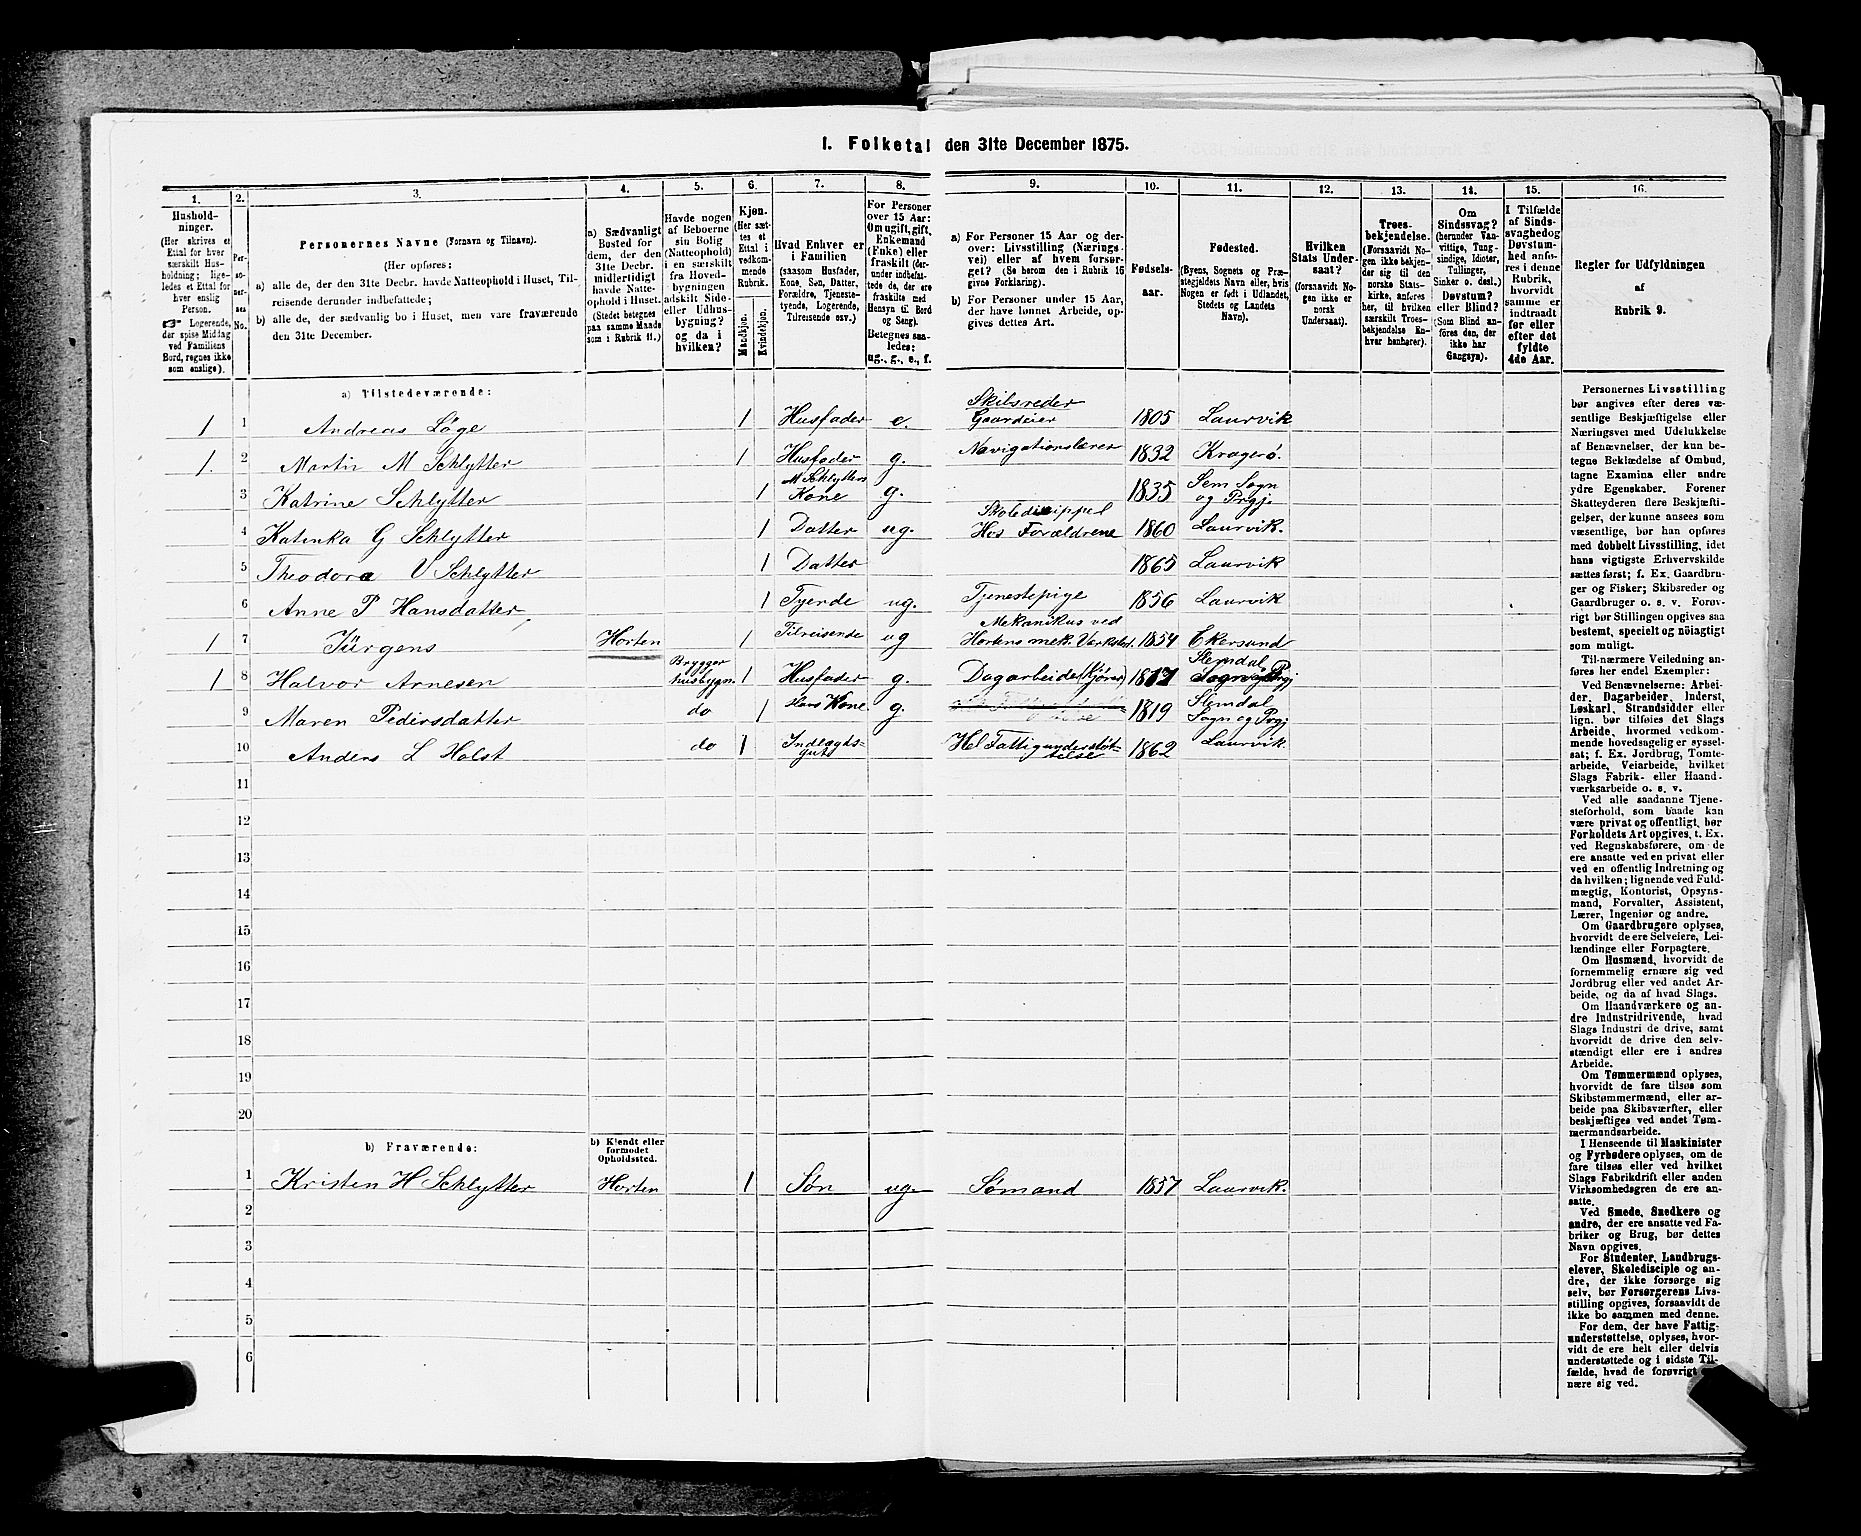 1. Folketal den 31te December 1875.
1. 2. 3. 4. 5. 6. 7. 8. 9. 10. 11. 12. 13. 14. 15. 16.
Hushold-
ninger.
(Her skrives et
Ettal for hver
særskilt Hus-
holdning; lige-
ledes et Ettal for
hver enslig
Person.
Logerende,
der spise Middag
ved Familiens
Bord, regnes ikke
som enslige).
Per-
so-
ner-
nes
No.
Personernes Navne (Fornavn og Tilnavn).
(Her opføres:
a) alle de, der den 31te Decbr. havde Natteophold i Huset, Til-
reisende derunder indbefattede;
b) alle de, der sædvanlig bo i Huset, men vare fraværende
den 31te December.
a) Sædvanligt
Bosted for
dem, der den
31te Decbr.
midlertidigt
havde Natte-
ophold i Huset.
(Stedet betegnes
paa samme Maade
som i Rubrik 11.)
Havde nogen
af Beboerne
sin Bolig
(Natteophold)
i en særskilt
fra Hoved-
bygningen
adskilt Side-
eller Udhus-
bygning?
og da i
hvilken?
Kjøn.
(Her sæt-
tes et
Ettal i
vedkom-
mende
Rubrik.
Mandkjøn.
Kvindekjøn.
Hvad Enhver er
i Familien
(saasom Husfader,
Kone, Søn, Datter,
Forældre, Tjeneste-
tyende, Logerende,
Tilreisende osv.)
For Personer
over 15 Aar:
Om ugift, gift,
Enkemand
(Enke) eller
fraskilt (der-
under indbefat-
tede de, der ere
fraskilte med
Hensyn til Bord
og Seng).
Betegnes saa-
ledes:
ug., g., e., f.
a) For Personer 15 Aar og der-
over: Livsstilling (Nærings-
vei) eller af hvem forsør-
get? (Se herom den i Rubrik 16
givne Forklaring).
b) For Personer under 15 Aar,
der have lønnet Arbeide, op-
gives dettes Art.
Fødsels-
aar.
Fødested.
(Byens, Sognets og Præ-
stegjeldets Navn eller, hvis
Nogen er født i Udlandet,
Stedets og Landets
Navn).
Hvilken
Stats Under-
saat?
(forsaavidt No-
gen ikke er
norsk
Undersaat).
Troes-
bekjendelse.
(Forsaavidt No-
gen ikke bekjen-
der sig til den
norske Stats-
kirke, anføres
her, til hvilken
særskilt Troes-
bekjendelse En-
hver henhører).
Om
Sindssvag?
(herunder Van-
vittige, Tung-
sindige, Idioter,
Tullinger,
Sinker o. desl.)
Døvstum?
eller Blind?
(Som Blind an-
føres den, der
ikke har
Gangsyn).
I Tilfælde
af Sinds-
svaghed og
Døvstum-
hed anfø-
res i denne
Rubrik,
hvorvidt
samme er
indtraadt
før eller
efter det
fyldte
4de Aar.
Regler for Udfyldningen
af
Rubrik 9.
a) Tilstedeværende:
1 1 Andreas Løge 1 Husfader e. Skibsreder Gaardeier 1805 Laurvik
1. 2 Martin M Schlytter 1 Husfader g. Navigationslærer 1832 Kragerø.
3 Katrine Schlytter 1 M Schlytters Kone g. 1835 Sem Sogn og Prgj.
4 Katinka G Schlytter 1 Datter ug. Skoledicippel Hos Forældrene 1860 Laurvik.
5 Theodora V Schlytter 1 Datter 1865 Laurvik
6 Anne P Hansdatter 1 Tyende ug. Tjenestepige 1856 Laurvik
1 7 Jürgens Horten 1 Tilreisende ug Mekanikus ved Hortens mek. Værksted 1854 Ekersund
1 8 Halvor Arnesen Bryggerhusbygn 1 Husfader g. Dagarbeide (Kjører) 1817 Slemdal Sogn og Prgj
9 Maren Pedersdatter do 1 Hans Kone g. 1819 Slemdal Sogn og Prgj
10 Anders L Holst do 1 Indlægtsgut Hel Fattigunderstøttelse 1862 Laurvik.
11
12
13
14
15
16
17
18
19
20
b) Fraværende:
b) Kjendt eller
formodet
Opholdssted.
1 Kristen H Schlytter Horten 1 Søn ug. Sømand 1857 Laurvik.
2
3
4
5
6
Personernes Livsstilling
bør angives efter deres væ-
sentlige Beskjæftigelse eller
Næringsvei med Udelukkelse
af Benævnelser, der kun be-
tegne Beklædelse af Ombud,
tagne Examina eller andre
ydre Egenskaber. Forener
Skatteyderen flere Beskjæfti-
gelser, der kunne ansees som
væsentlige, bør han opføres
med dobbelt Livsstilling, idet
hans vigtigste Erhvervskilde
sættes først; f. Ex. Gaardbru-
ger og Fisker; Skibsreder og
Gaardbruger o. s. v. Forøv-
rigt bør Stillingen opgives saa
bestemt, specielt og nøiagtigt
som muligt.
Til nærmere Veiledning an-
føres her endel Exempler:
Ved Benævnelserne: Arbei-
der, Dagarbeider, Inderst,
Løskarl, Strandsidder eller
lign. bør tilføies det Slags
Arbeide, hvormed vedkom-
mende hovedsagelig er syssel-
sat; f. Ex. Jordbrug, Tomte-
arbeide, Veiarbeide, hvilket
Slags Fabrik- eller Haand-
værksarbeide o. s. v.
Ved alle saadanne Tjene-
steforhold, som baade kan
være privat og offentligt, bør
Forholdets Art opgives, t. Ex.
ved Regnskabsførere, om de
ere ansatte ved en privat eller
ved en offentlig Indretning og
da hvilken; lignende ved Fuld-
mægtig, Kontorist, Opsyns-
mand, Forvalter, Assistent,
Lærer, Ingeniør og andre.
Om Gaardbrugere oplyses,
hvorvidt de ere Selveiere, Lei-
lændinge eller Forpagtere.
Om Husmænd, hvorvidt de
fornemmelig ernære sig ved
Jordbrug eller ved andet Ar-
beide, og da af hvad Slags.
Om Haandværkere og an-
dre Industridrivende, hvad
Slags Industri de drive, samt
hvorvidt de drive den selv-
stændigt eller ere i andres
Arbeide.
Om Tømmermænd oplyses,
hvorvidt de fare tilsøs som
Skibstømmermænd, eller ar-
beide paa Skibsværfter, eller
beskjæftiges ved andet Tøm-
mermandsarbeide.
I Henseende til Maskinister
og Fyrbødere oplyses, om de
fare tilsøs eller ved hvilket
Slags Fabrikdrift eller anden
Virksomhedsgren de ere an-
satte.
Ved Smede, Snedkere og
andre, der ere ansatte ved Fa-
briker og Brug, bør dettes
Navn opgives.
For Studenter, Landbrugs-
elever, Skoledisciple og an-
dre, der ikke forsørge sig
selv, bør Forsørgerens Livs-
stilling opgives, forsaavidt de
ikke bo sammen med denne.
For dem, der have Fattig-
understøttelse, oplyses, hvor-
vidt de ere helt eller delvis
understøttede og i sidste Til-
fælde, hvad de forøvrigt er-
nære sig ved.